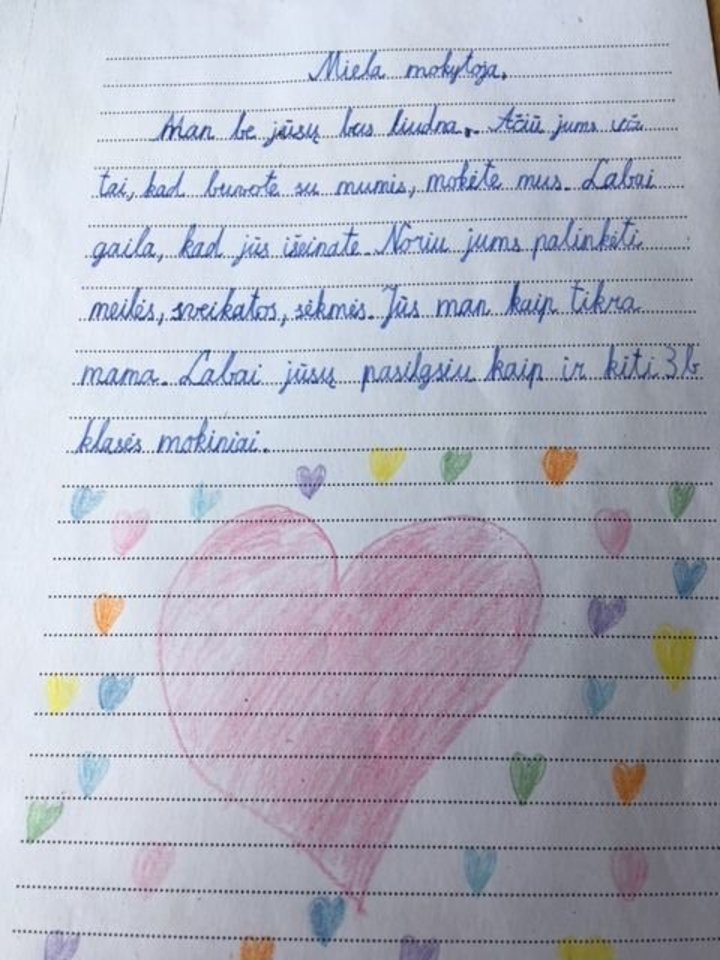 Miela mokytoja,
Man be jūsų bus liudna. Ačiū jums už
tai, kad buvote su mumis, mokėte mus. Labai
gaila, kad jūs išeinate. Noriu jums palinkėti
meilės, sveikatos, sėkmės. Jūs man kaip tikra
mama. Labai jūsų pasilgsiu kaip ir kiti 3b
klasės mokiniai.